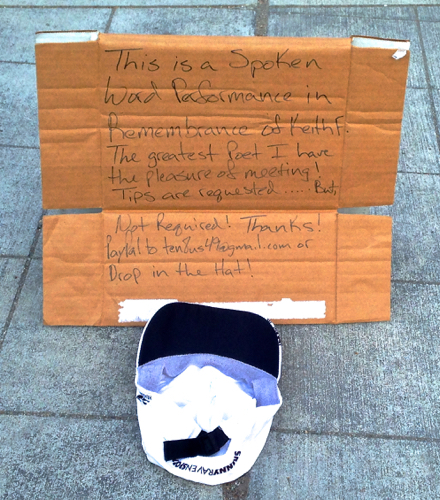 This is a Spoken
Word Performance in
Remembrance of Keith F.
The greatest Poet I have
the pleasure of meeting!
Tips are requested..... But,
Not Required! Thanks!
Paypal to @gmail.com or
Drop in the Hat!
SKINNYRAVEN